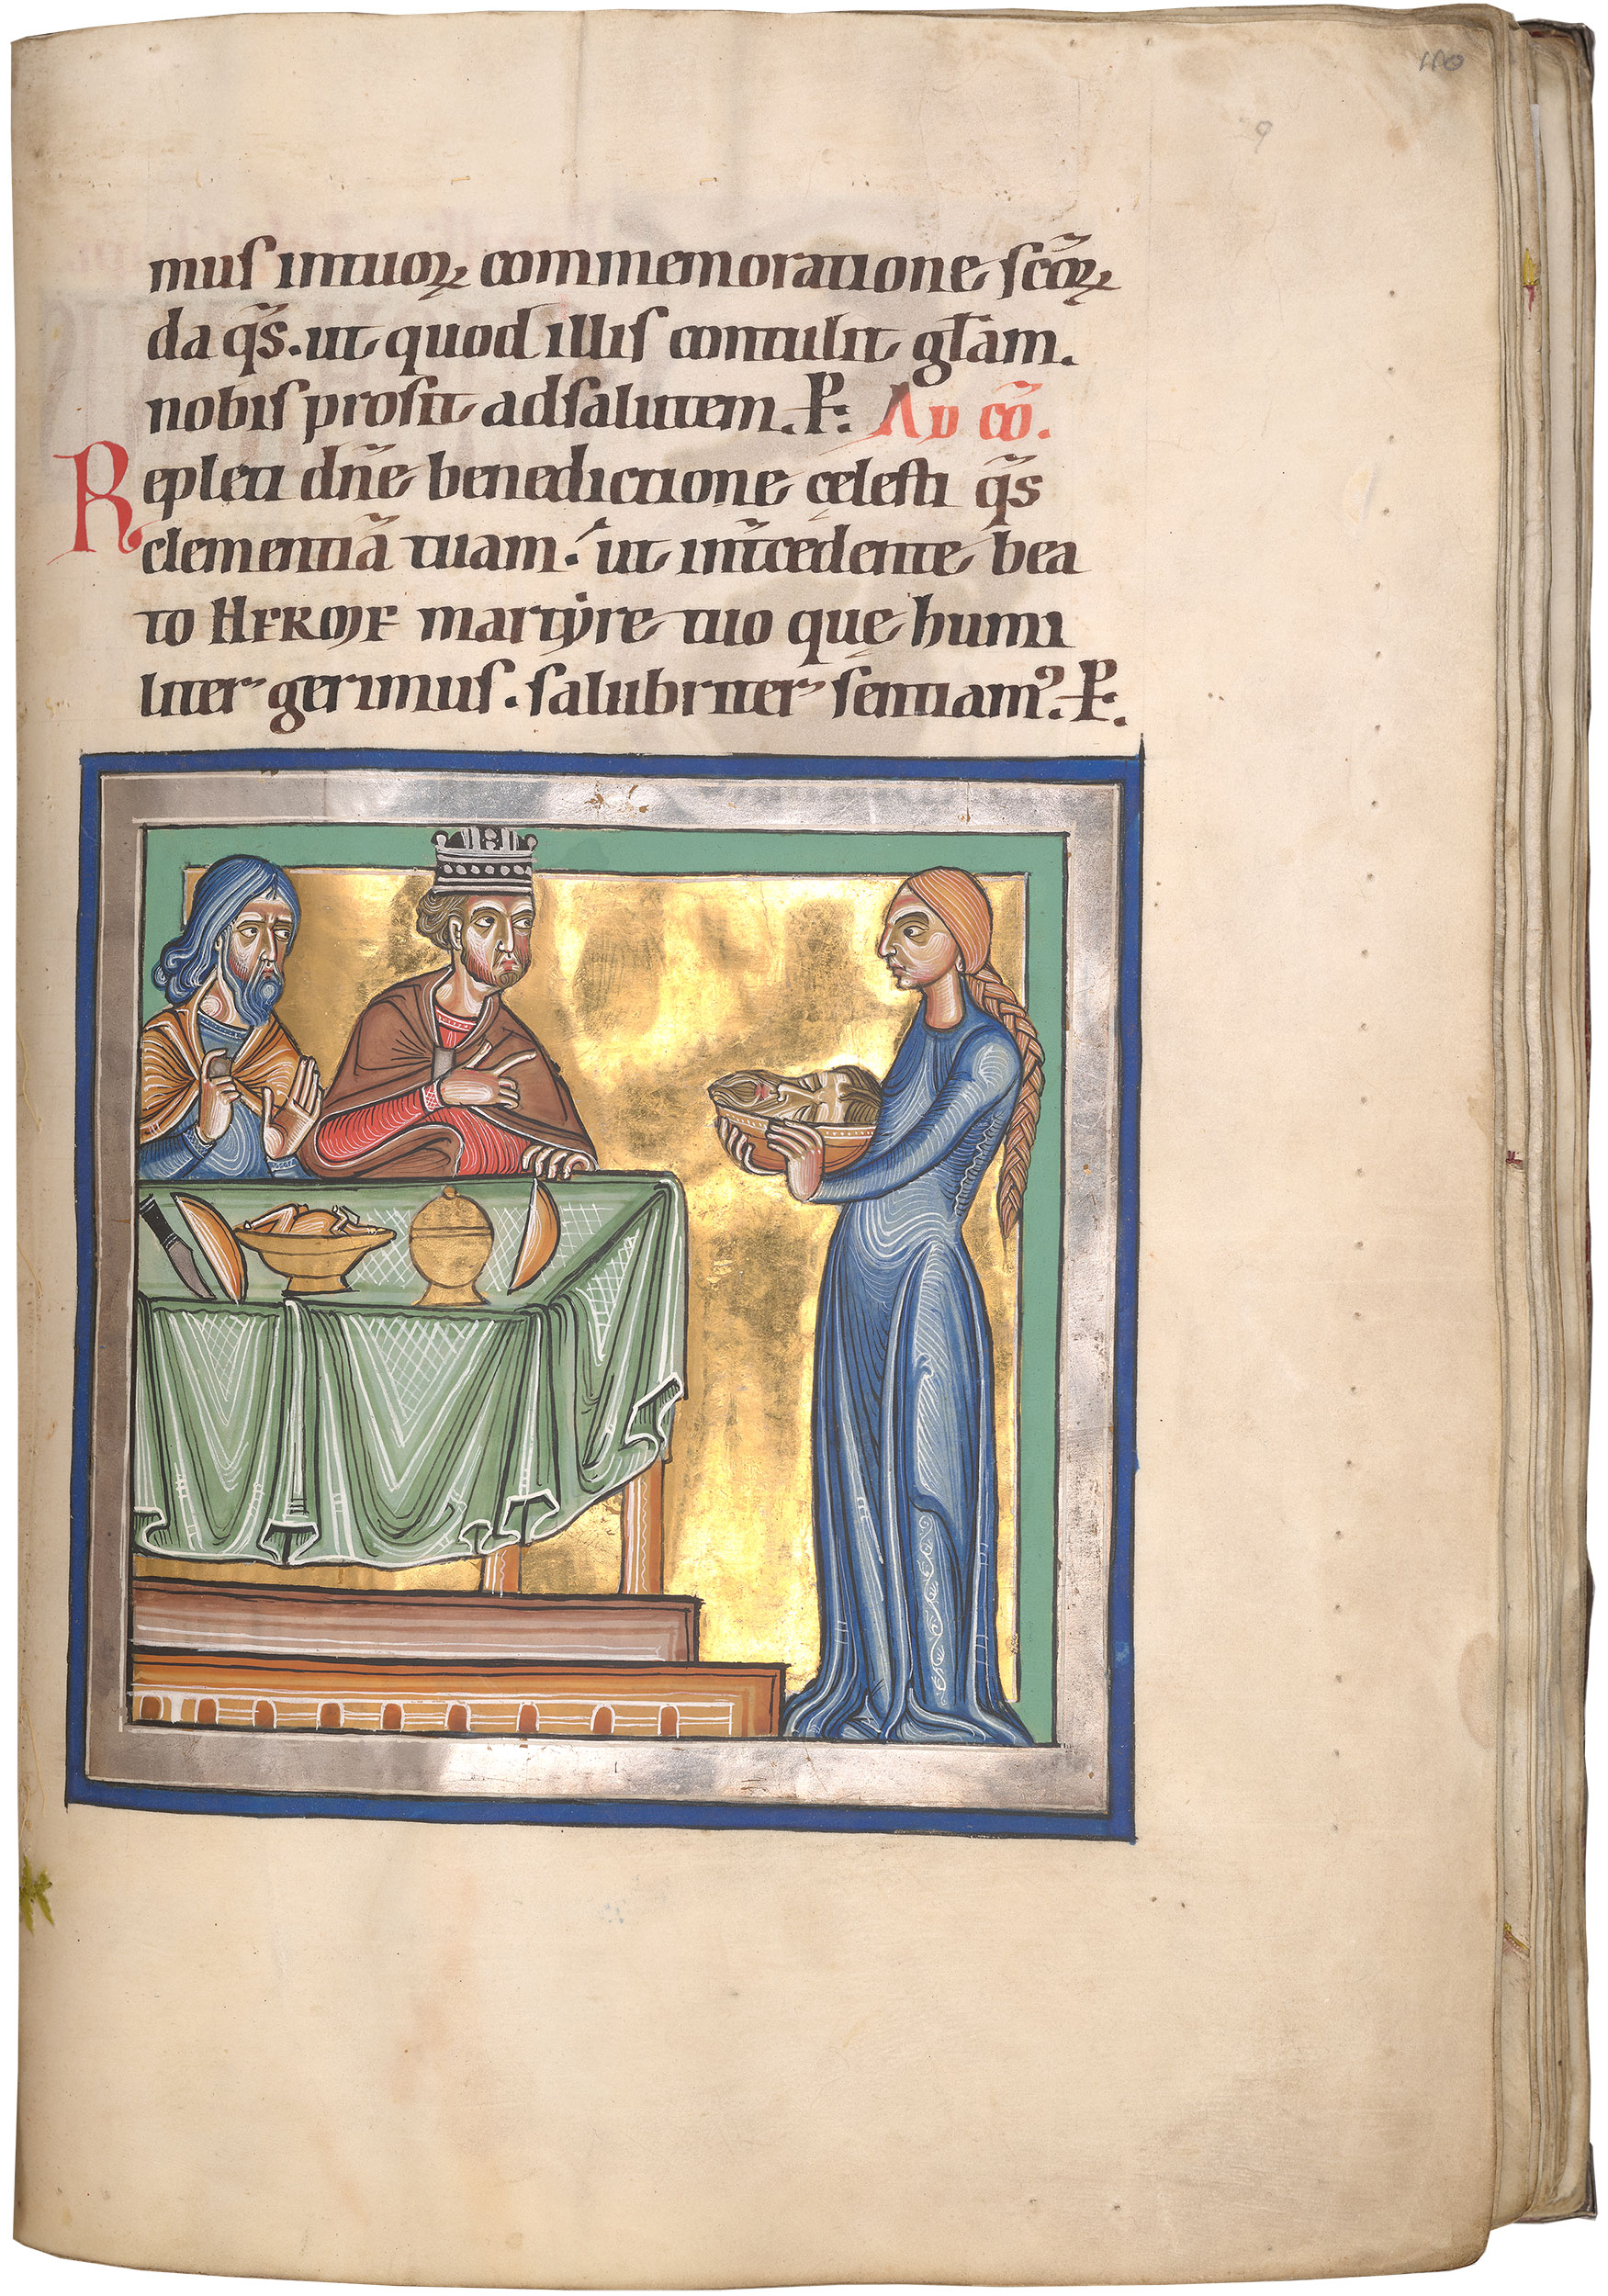 muſ intuoꝝ commemoratione ſcōꝝ
da qͥs. ut quod illiſ contulit gl̄am.
nobiſ proſit adſalutem. P̲: AD cō.
Repleti dn̄e benedictione cęleſti qͥs
clementiā tuam. ut int̄cedente bea
to HERME martẏre tuo quę humi
liter gerimuſ. ſalubriter ſentiamꝰ. P̲.